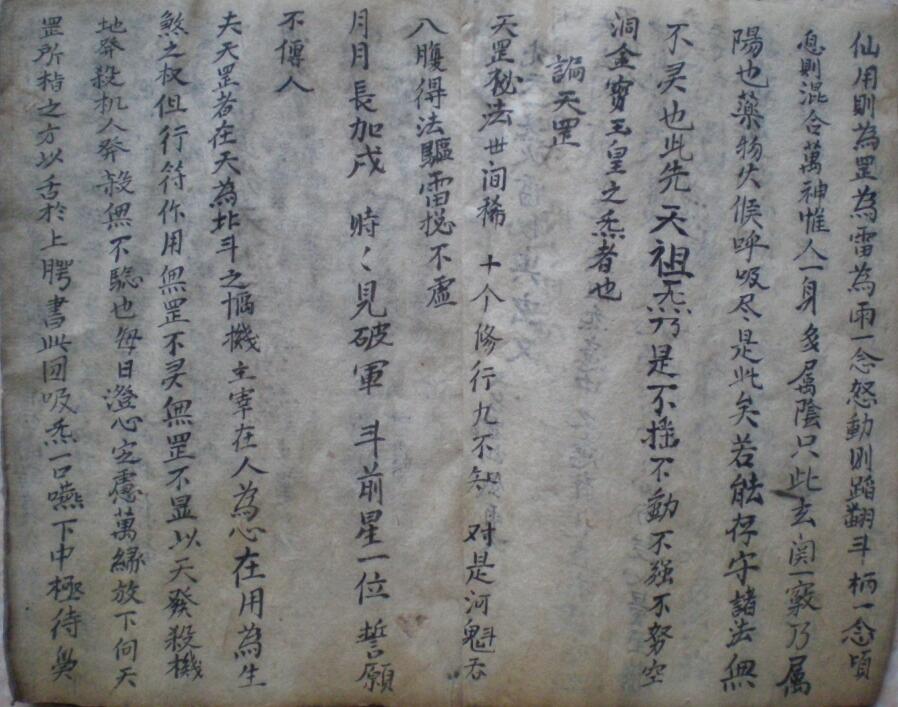 仙用則為罡為雷為雨一念怒動則蹈翻斗柄一念頃
息則混合萬神惟人一身多属陰只此玄関一竅乃属
陽也藥物火候呼吸尽是此矣若能存守諸法無
不灵也此先天祖炁乃是不摇不動不强不努空
洞金寳玉皇之炁者也
謅天罡
天罡秘法世间稀 十个修行九不知 对是河魁吞
八腹得法驅雷挩不虚
月月長加戌 時々見破軍 斗前星一位 誓願
不傳人
夫天罡者在天為北斗之樞機主宰在人為心在用為生
煞之权但行符作用無罡不灵無罡不显以天發殺機
地發殺机人發殺無不驗也每日澄心定慮萬縁放下向天
罡所指之方以舌於上腭書此囙吸炁一口嚥下中極待